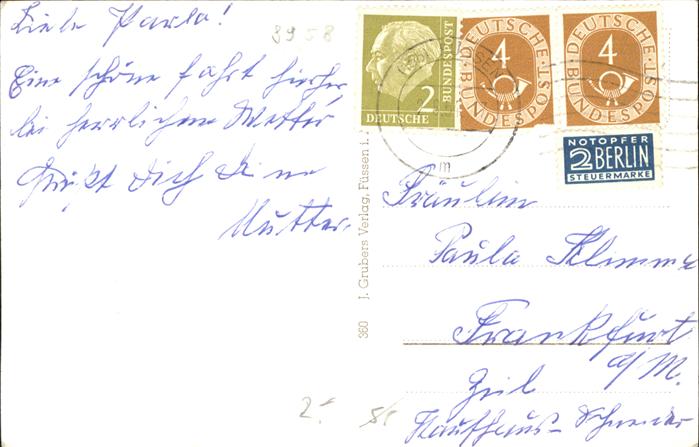 Liebe Paula!
8958
Eine schöne Fahrt hierher
bei herrlichem Wetter
Grüßt Dich Deine
Mutter.
2
DEUTSCHE
BUNDESPOST
4
DEUTSCHE
BUNDESPOST
4
DEUTSCHE
BUNDESPOST
NOTOPFER
2 BERLIN
STEUERMARKE
360 J. Grubers Verlag, Füssen i.
Fräulein
Paula Klemme
Frankfurt
a/M.
Zeil
Kaufhaus-Schneider
2.-